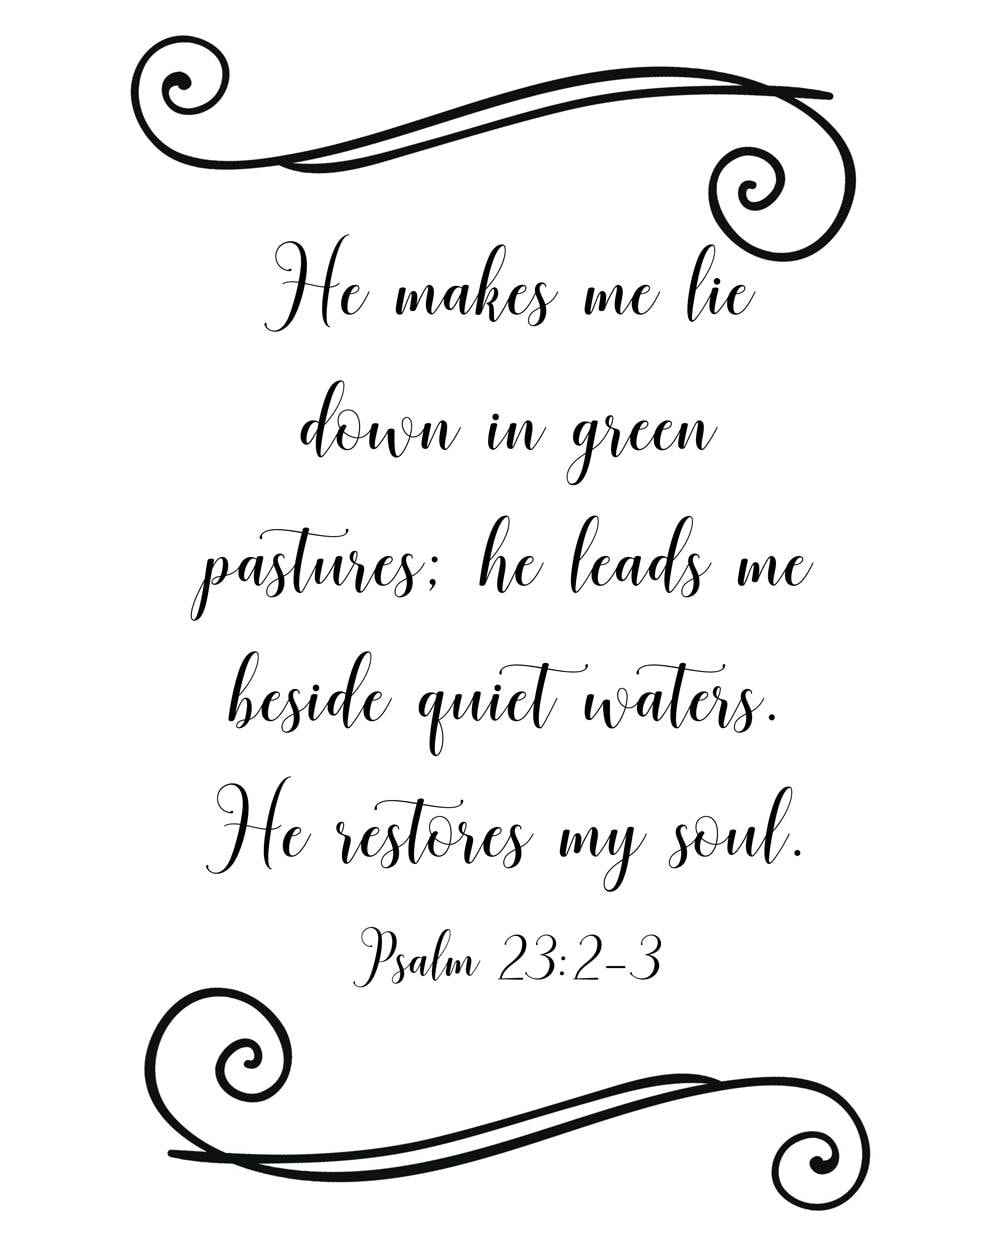 He makes me lie
down in green
pastures; he leads me
beside quiet waters.
He restores my soul.
Psalm 23:2-3